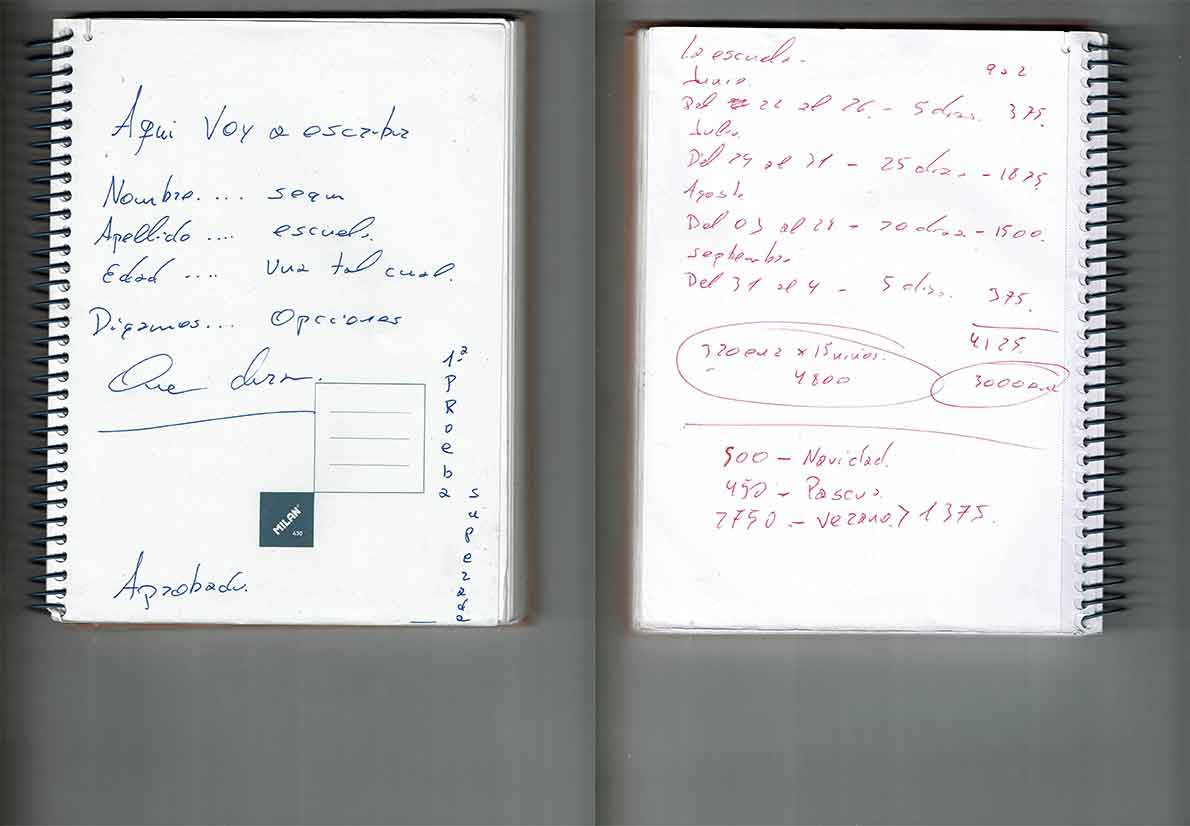 Aqui Voy a escribir
Nombre.... segun
Apellido .... escuela.
Edad .... una tal cual.
Digamos... Opciones
Que dira.
1ª PRoeba
superada
MILAN
430
Aprobado.
La escuela. 9 a 2
Junio.
Del 22 al 26 - 5 dias. 375.
Julio.
Del 29 al 31 - 25 dias - 1875
Agosto
Del 03 al 28 - 20 dias - 1500.
septiembre
Del 31 al 4 - 5 dias. 375.
4125.
320 eur x 15 niños.
4800 3000 eur
- Navidad.
450 - Pascua.
2750 - verano > 1375.